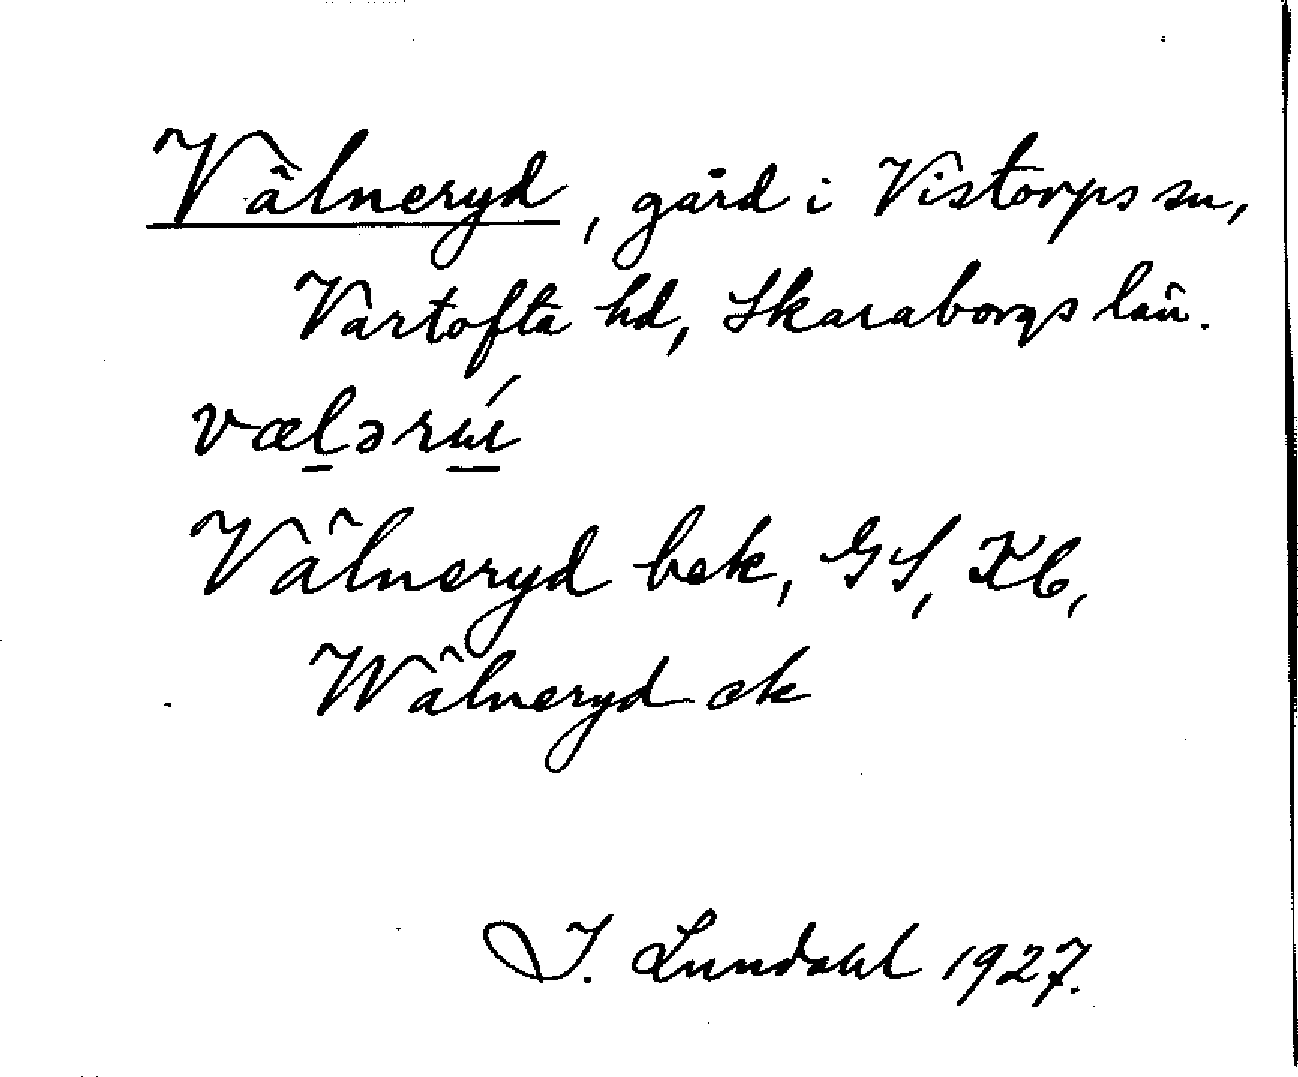 Välneryd, gård i Vistorps sn,
Vartofta hd, Skaraborgs län.
Välneryd bek, GS, Kb,
Wälneryd ek
I. Lundahl 1927.